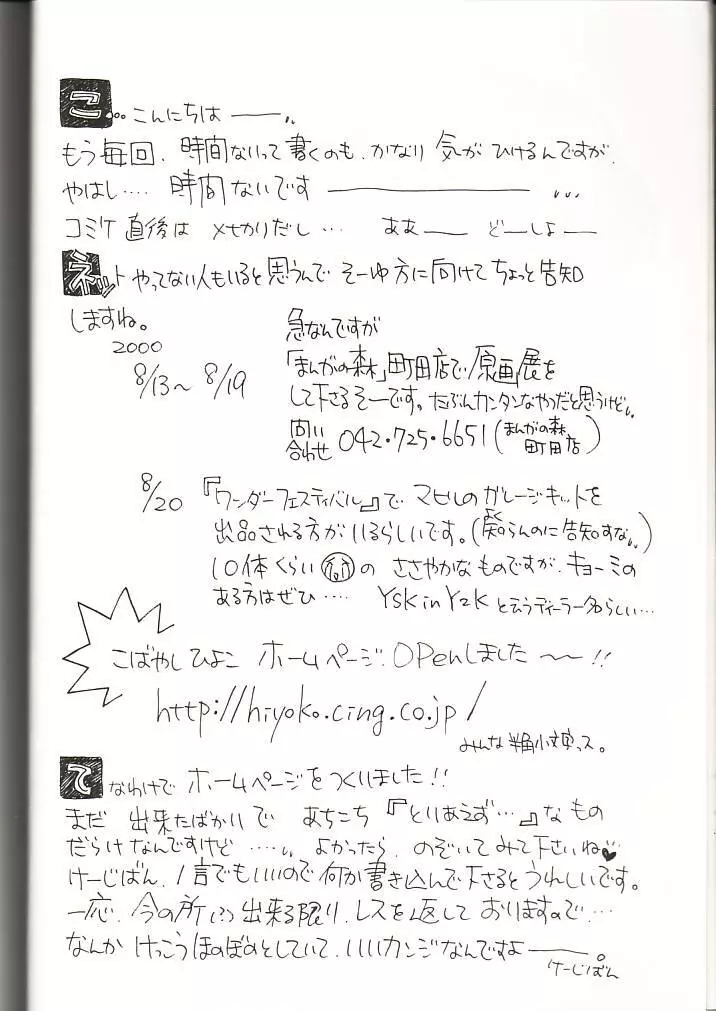 こ…こんにちは――…
もう毎回、時間ないって書くのも、かなり 気が ひけるんですが、
やはし…. 時間 ないです ―――――― …
コミケ 直後は 〆切りだし… ああ―― ど―しよ――
ネット やってない人もいると思うんで そーゆ方に向けてちょっと告知
しますね。
2000
8/13〜 8/19
急なんですが
「まんがの森」町田店で「原画」展を
して下さるそーです。たぶんカンタンなやつだと思うけど…
問い合わせ 042・725・6651(まんがの森 町田店)
8/20 『ワンダーフェスティバル』で マヒルのガレージキットを
出品される方がいるらしいです。(よく知らんのに告知すな…)
10体くらい の ささやかなものですが、キョーミの
ある方はぜひ…. YSK in Y2K と云うディーラー名らしい…
こばやしひよこ ホームページ OPenしました 〜〜!!
http://hiyoko.cing.co.jp/
みんな半角小文字っス。
てなわけで ホームページをつくりました!!
まだ 出来たばかりで あちこち 『とりあえず…』な もの
だらけなんですけど ….. よかったら、のぞいてみて下さいね♥
けーじばん、1言でもいいので何か書き込んで下さるとうれしいです。
一応、今の所は 出来る限り、レスを返して おりますので…
なんか けっこうほのぼのとしていて、いいカンジなんですよ――。
けーじばん